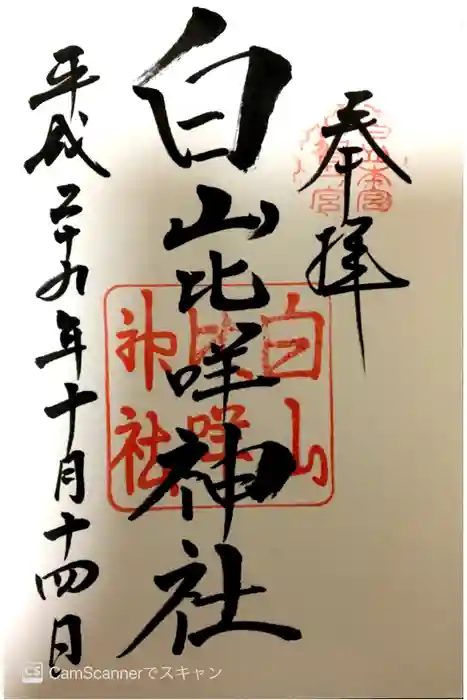 奉拝
白山本宮
加賀一ノ宮
白山比咩神社
白山
比咩
神社
平成二十九年十月十四日
CS CamScannerでスキャン